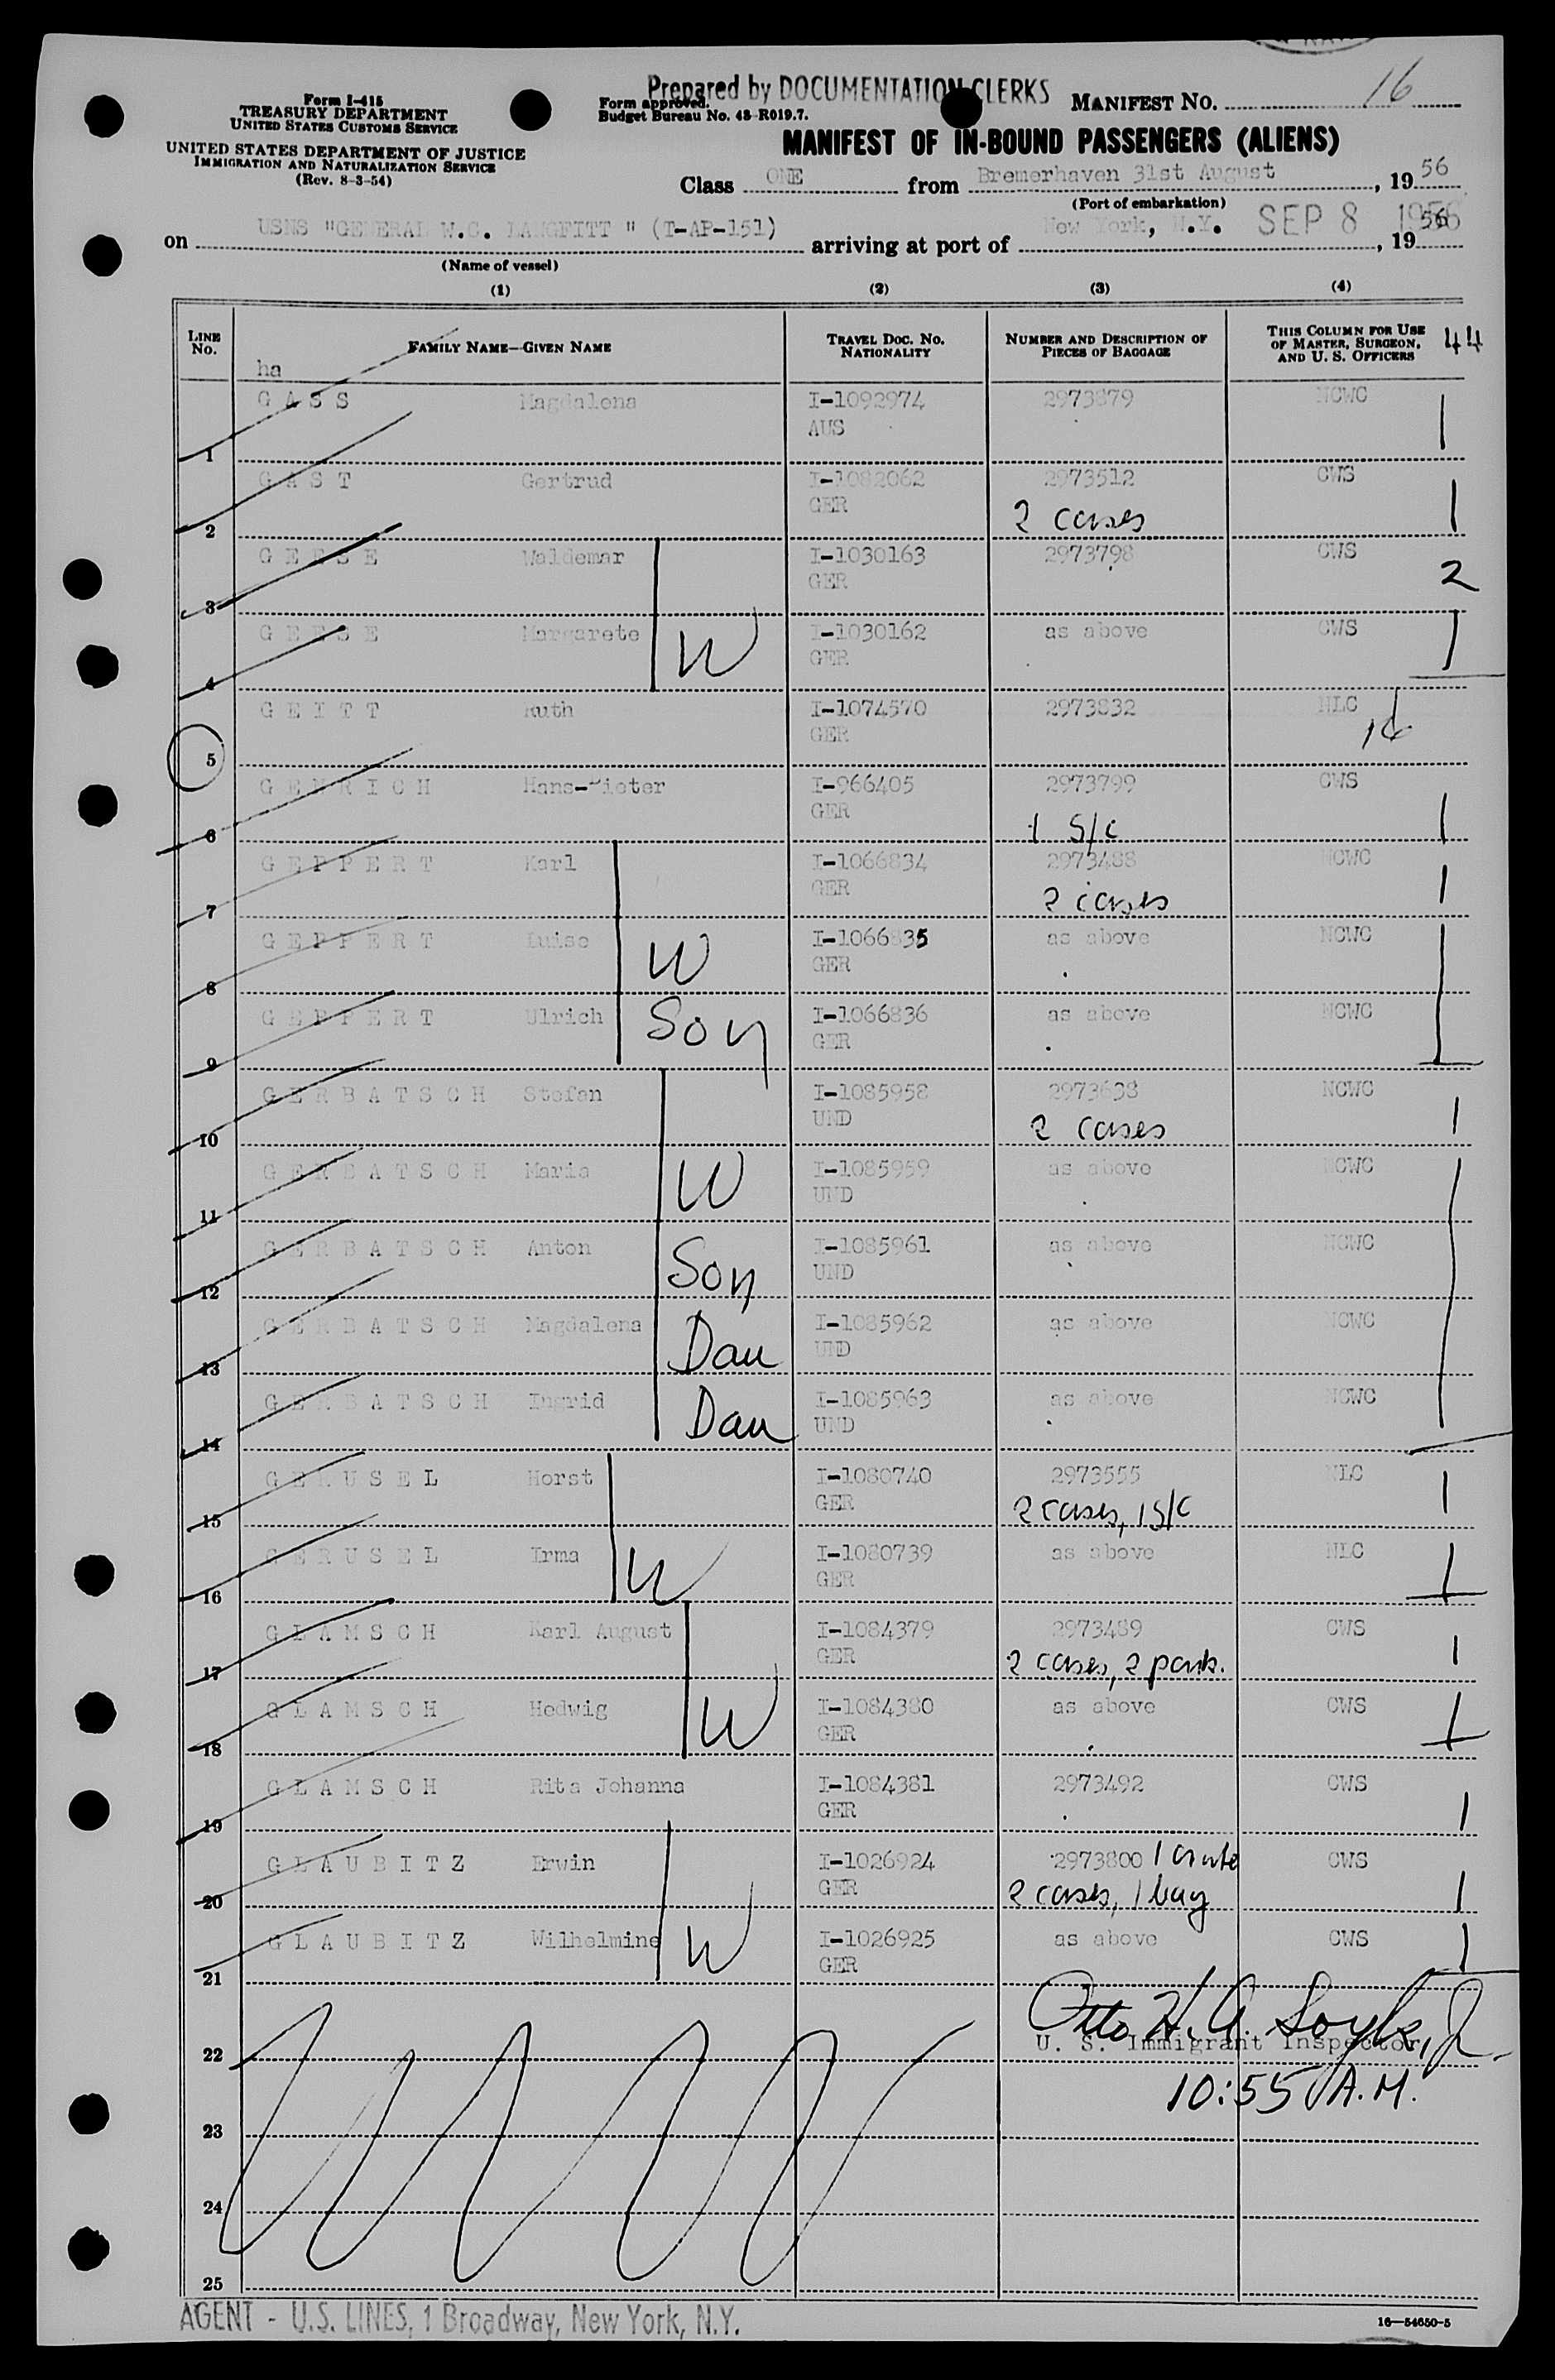 Prepared by DOCUMENTATION CLERKS
Form I-415
TREASURY DEPARTMENT
UNITED STATES CUSTOMS SERVICE
UNITED STATES DEPARTMENT OF JUSTICE
IMMIGRATION AND NATURALIZATION SERVICE
(Rev. 8-3-54)
Form approved.
Budget Bureau No. 43-R019.7.
MANIFEST NO. 16
MANIFEST OF IN-BOUND PASSENGERS (ALIENS)
Class ONE from Bremerhaven 31st August, 1956
(Port of embarkation)
on USNS "GENERAL W.C. LANGFITT " (T-AP-151) arriving at port of New York, N.Y. SEP 8 1956, 1956
(Name of vessel)
(1) (2) (3) (4)
LINE No. FAMILY NAME—GIVEN NAME TRAVEL DOC. NO. NATIONALITY NUMBER AND DESCRIPTION OF PIECES OF BAGGAGE THIS COLUMN FOR USE OF MASTER, SURGEON, AND U. S. OFFICERS 44
ha
GASS Magdalena I-1092974 2973879 NCWC
1 AUS 1
GAST Gertrud I-1082062 2973512 CWS
2 GER 2 cases 1
GEESE Waldemar I-1030163 2973798 CWS
3 GER 2
GEESE Margarete W I-1030162 as above CWS
4 GER
GEITT Ruth I-1074570 2973832 NLC
5 GER 16
GENRICH Hans-Dieter I-966405 2973799 CWS
6 GER 1 S/c 1
GEPPERT Karl I-1066834 2973488 NCWC
7 GER 2 cases 1
GEPPERT Luise W I-1066835 as above NCWC
8 GER
GEPPERT Ulrich Son I-1066836 as above NCWC
9 GER
GERBATSCH Stefan I-1085958 2973638 NCWC
10 UND 2 cases 1
GERBATSCH Maria W I-1085959 as above NCWC
11 UND
GERBATSCH Anton Son I-1085961 as above NCWC
12 UND
GERBATSCH Magdalena Dau I-1085962 as above NCWC
13 UND
GERBATSCH Ingrid Dau I-1085963 as above NCWC
14 UND
GERUSEL Horst I-1080740 2973555 NLC
15 GER 2 cases, 1 S/C 1
GERUSEL Irma W I-1080739 as above NLC
16 GER
GLAMSCH Karl August I-1084379 2973489 CWS
17 GER 2 cases, 2 1
GLAMSCH Hedwig W I-1084380 as above CWS
18 GER
GLAMSCH Rita Johanna I-1084381 2973492 CWS
19 GER 1
GLAUBITZ Erwin I-1026924 2973800 1 crate CWS
20 GER 2 cases, 1 bag 1
GLAUBITZ Wilhelmine W I-1026925 as above CWS
21 GER
Otto H. A. Soyk, Jr.
22 U. S. Immigrant Inspector
10:55 A.M.
23
24
25
AGENT - U.S. LINES, 1 Broadway, New York, N.Y.
16—54650-5